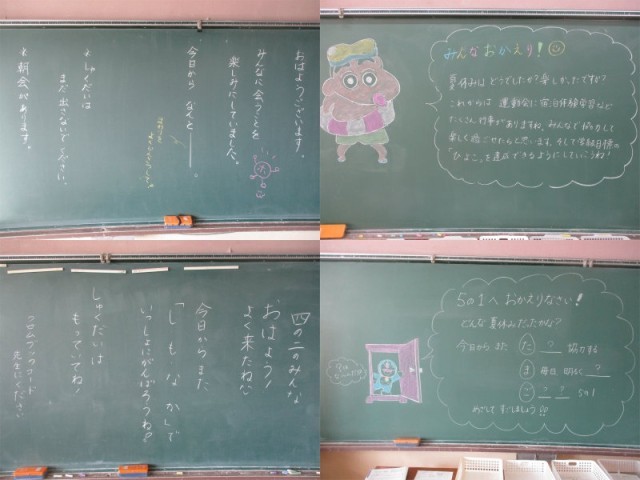 おはようございます。
みんなに会うことを
楽しみにしていました。
今日から なんと
＊しゅくだいは
まだ出さないでください。
＊朝会があります。
みんなおかえり！
夏休みはどうでしたか？楽しかったですか？
これからは 運動会に宿泊体験学習など
たくさん行事がありますね。みんなで協力して
楽しく過ごせたらと思います。そして学級目標の
「ひよこ」を達成できるようにしていこうね！
四の二のみんな
おはよう！
よく来たね！
今日からまた
「しもなか」で
いっしょにがんばろうね？
しゅくだいは
もっていてね！
クロムブックのコード
先生にください
5の1へ おかえりなさい！
どんな夏休みだったかな？
今日からまた た ？ 協力する
ま 毎日 明るく ？
こ ？ ？ 5の1
めざして すごしましょう